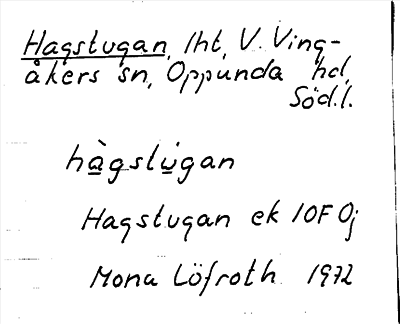 Hagstugan, lht, V. Ving-
åkers sn, Oppunda hd,
Söd.l.
hàgstu̇gan
Hagstugan ek 10F 0j
Mona Löfroth 1972